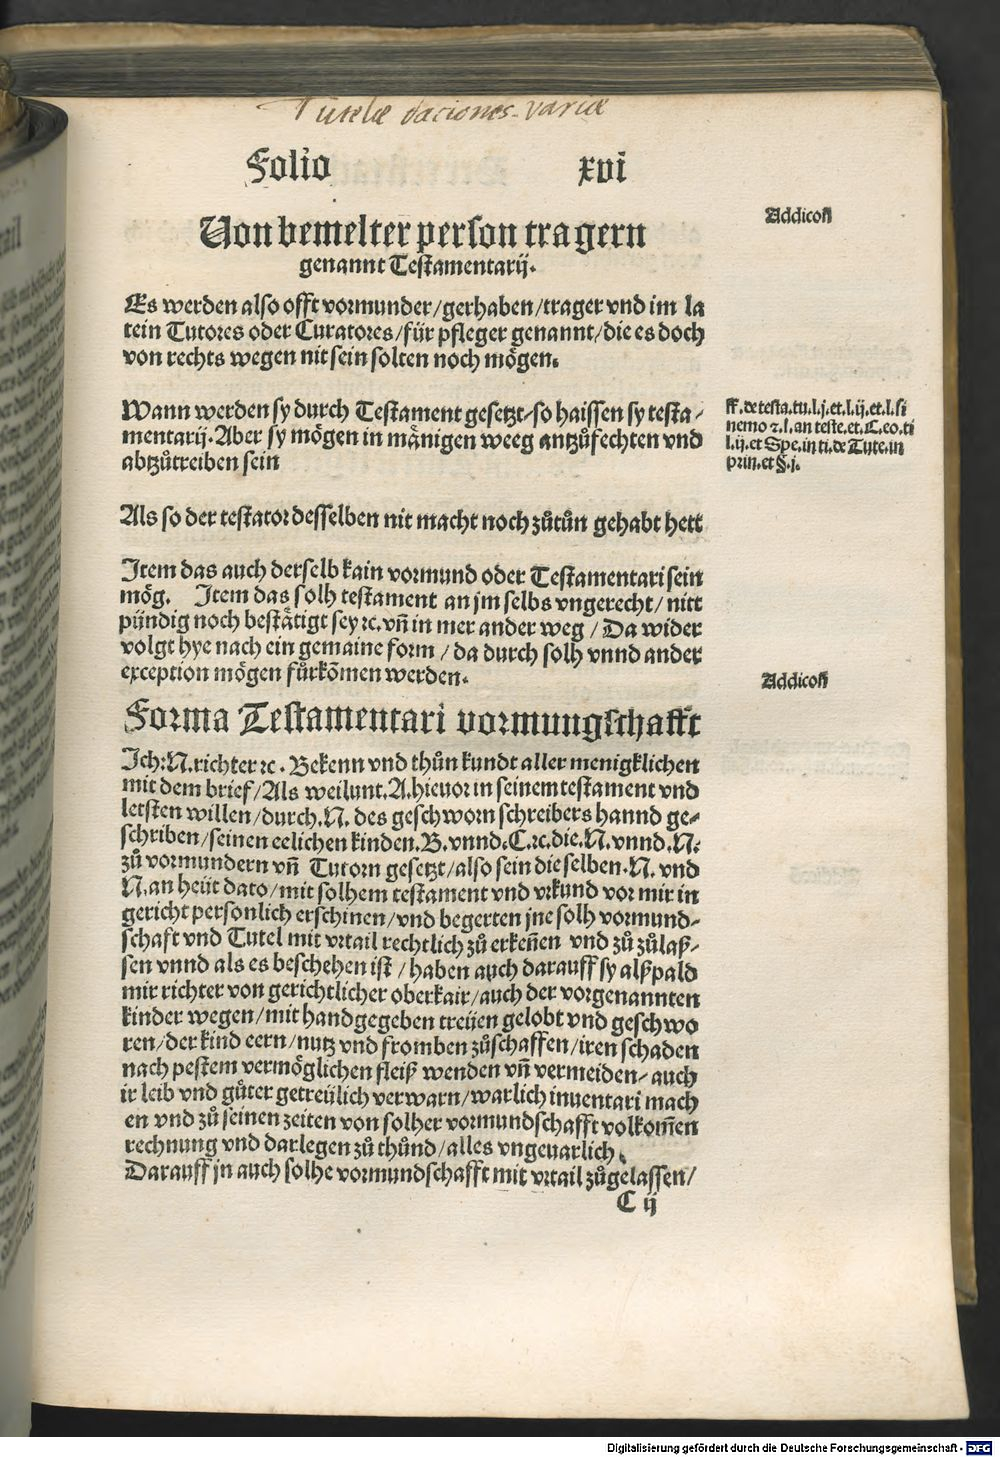 Tutelæ daciones variæ
Folio xvi
Addicoñ
Von bemelter person tragern
genannt Testamentarij.
Es werden also offt vormunder/gerhaben/trager vnd im la
tein Tutores oder Curatores/für pfleger genannt/die es doch
von rechts wegen nit sein solten noch mögen.
Wann werden sy durch Testament gesetzt/so haissen sy testa/
mentarij. Aber sy mögen in mänigen weeg antzůfechten vnd
abtzůtreiben sein
ff. de testa.tu.l.j.et.l.ij.et.l.si
nemo ⁊.l.an teste.et.C.eo.ti
l.ij.et Spe.in ti.de Tute.in
prin.et §.j.
Als so der testator desselben nit macht noch zůtůn gehabt hett
Item das auch derselb kain vormund oder Testamentari sein
mög. Item das solh testament an jm selbs vngerecht/nitt
pündig noch bestätigt sey ⁊c. vñ in mer ander weg/Da wider
volgt hye nach ein gemaine form/da durch solh vnnd ander
exception mögen fürkõmen werden.
Addicoñ
Forma Testamentari vormungschafft
Ich: N. richter ⁊c. Bekenn vnd thůn kundt aller menigklichen
mit dem brief/Als weilunt. A. hieuor in seinem testament vnd
letsten willen/durch. N. des geschworn schreibers hannd ge/
schriben/seinen eelichen kinden. B. vnnd. C. ⁊c. die. N. vnnd. N.
zů vormundern vñ Tutorn gesetzt/also sein die selben. N. vnd
N. an heüt dato/mit solhem testament vnd vrkund vor mir in
gericht personlich erschinen/vnd begerten jne solh vormund/
schaft vnd Tutel mit vrtail rechtlich zů erkeñen vnd zů zůlaß/
sen vnnd als es beschehen ist/haben auch darauff sy alßpald
mir richter von gerichtlicher oberkait/auch der vorgenannten
kinder wegen/mit handgegeben treüen gelobt vnd geschwo
ren/der kind eern/nutz vnd fromben zůschaffen/iren schaden
nach pestem vermöglichen fleiß wenden vñ vermeiden/auch
ir leib vnd gůter getreülich verwarn/warlich inuentari mach
en vnd zů seinen zeiten von solher vormundschafft volkom̃en
rechnung vnd darlegen zů thůnd/alles vngeuarlich.
Darauff jn auch solhe vormundschafft mit vrtail zůgelassen/
C ij
Digitalisierung gefördert durch die Deutsche Forschungsgemeinschaft - DFG